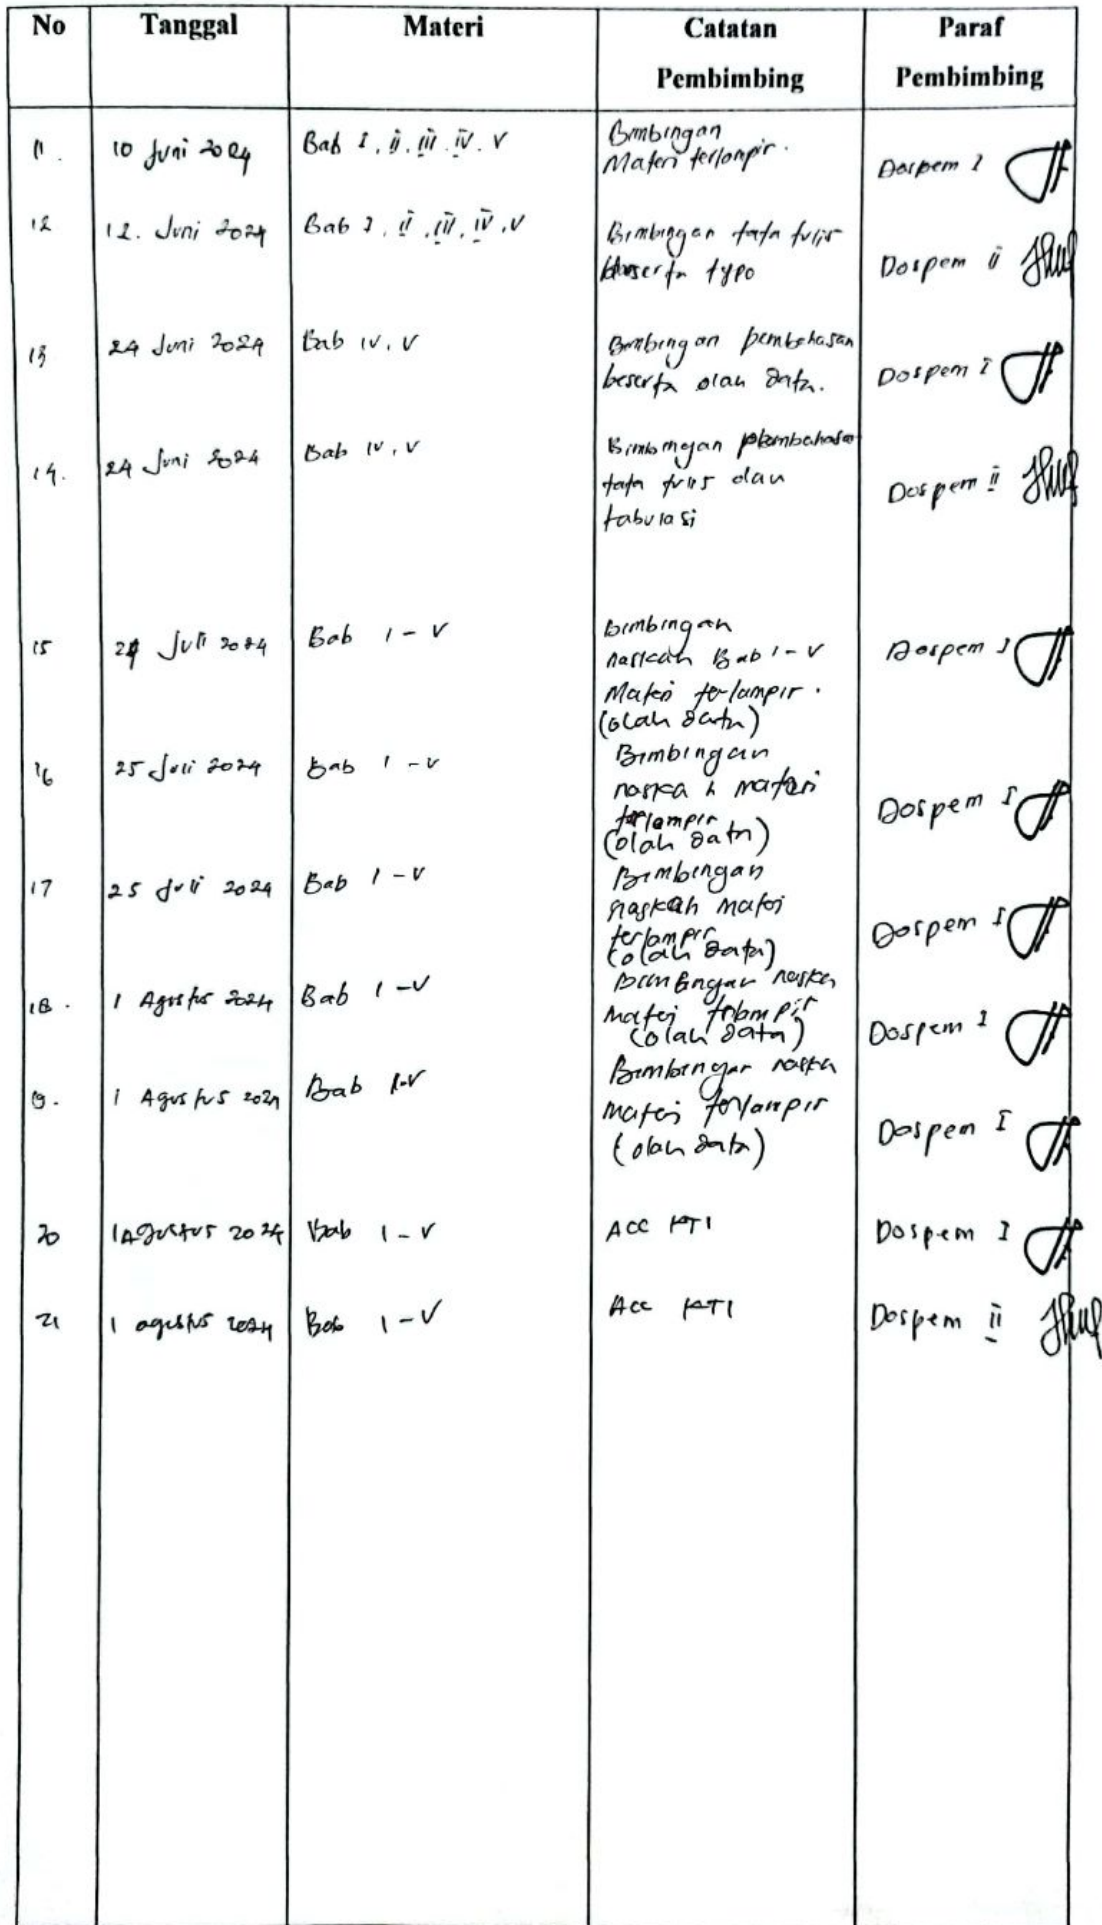 No Tanggal Materi Catatan Pembimbing Paraf Pembimbing
11. 10 Juni 2024 Bab I, II, III, IV, V Bimbingan Dospem I
Materi terlampir.
12 12. Juni 2024 Bab I, II, III, IV, V Bimbingan tata tulis Dospem II
beserta typo
13 24 Juni 2024 Bab IV, V Bimbingan pembahasan Dospem I
beserta olah data.
14. 24 Juni 2024 Bab IV, V Bimbingan pembahasan Dospem II
tata tulis dan
tabulasi
15 24 Juli 2024 Bab I - V Bimbingan Dospem I
naskah Bab I - V
Materi terlampir.
(olah data)
16 25 Juli 2024 Bab I - V Bimbingan Dospem I
naskah materi
terlampir
(olah data)
17 25 Juli 2024 Bab I - V Bimbingan Dospem I
naskah materi
terlampir
(olah data)
18. 1 Agustus 2024 Bab I - V Bimbingan naska Dospem I
materi terlampir
(olah data)
19. 1 Agustus 2024 Bab I-V Bimbingan naska Dospem I
materi terlampir
(olah data)
20 1 Agustus 2024 Bab I - V ACC KTI Dospem I
21 1 agustus 2024 Bab I - V Acc KTI Dospem II